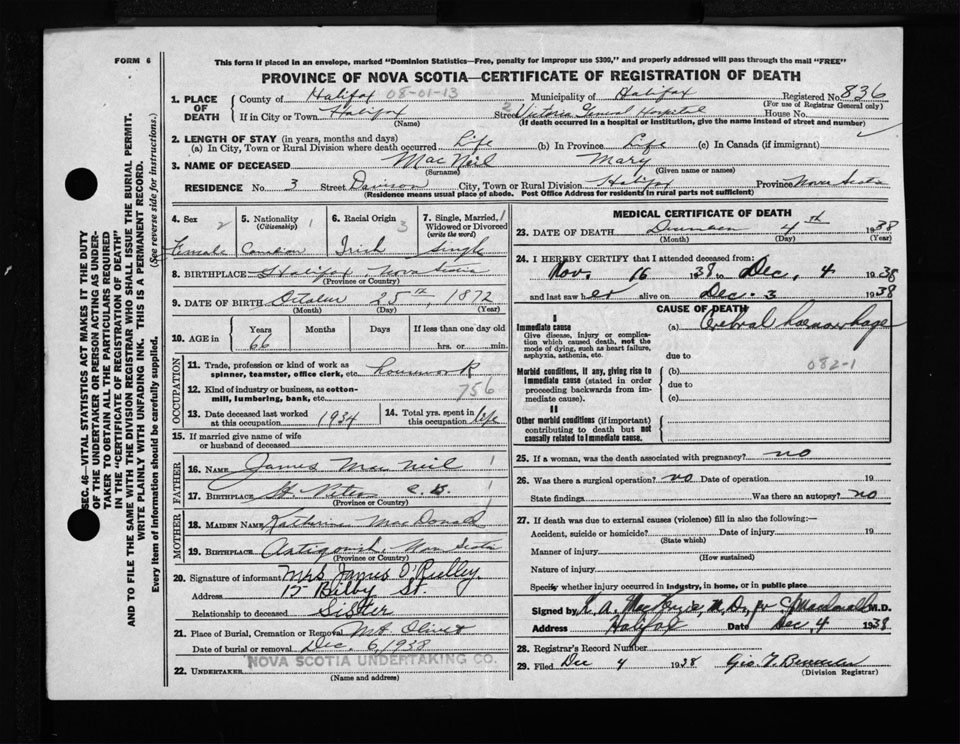 FORM 6
This form if placed in an envelope, marked "Dominion Statistics—Free, penalty for improper use $300," and properly addressed will pass through the mail "FREE"
PROVINCE OF NOVA SCOTIA—CERTIFICATE OF REGISTRATION OF DEATH
1. PLACE OF DEATH { County of Halifax 08-01-13 Municipality of Halifax Registered No. 836
(For use of Registrar General only)
If in City or Town Halifax (Name) Street 2 Victoria General Hospital House No.
(If death occurred in a hospital or institution, give the name instead of street and number)
2. LENGTH OF STAY (in years, months and days)
(a) In City, Town or Rural Division where death occurred Life (b) In Province Life (c) In Canada (if immigrant)
3. NAME OF DECEASED Mac Neil (Surname) Mary (Given name or names)
RESIDENCE No. 3 Street Davison City, Town or Rural Division Halifax Province Nova Scotia
(Residence means usual place of abode. Post Office Address for residents in rural parts not sufficient)
4. Sex 2 Female
5. Nationality (Citizenship) 1 Canadian
6. Racial Origin 3 Irish
7. Single, Married, Widowed or Divorced (write the word) 1 Single
8. BIRTHPLACE Halifax, Nova Scotia
(Province or Country)
9. DATE OF BIRTH October 25th, 1872
(Month) (Day) (Year)
10. AGE in { Years 66 Months Days If less than one day old hrs. or min.
OCCUPATION
11. Trade, profession or kind of work as spinner, teamster, office clerk, etc. housework
12. Kind of industry or business, as cotton-mill, lumbering, bank, etc. 756
13. Date deceased last worked at this occupation 1934
14. Total yrs. spent in this occupation life
15. If married give name of wife or husband of deceased
FATHER
16. NAME James Mac Neil 1
17. BIRTHPLACE St Peters C.B. 1
(Province or Country)
MOTHER
18. MAIDEN NAME Katherine MacDonald
19. BIRTHPLACE Antigonish, Nova Scotia
(Province or Country)
20. Signature of informant Mrs James O'Reilley
Address 15 Bilby St.
Relationship to deceased Sister
21. Place of Burial, Cremation or Removal Mt Olivet
Date of burial or removal Dec. 6, 1938
22. UNDERTAKER NOVA SCOTIA UNDERTAKING CO.
(Name and address)
MEDICAL CERTIFICATE OF DEATH
23. DATE OF DEATH December 4th 1938
(Month) (Day) (Year)
24. I HEREBY CERTIFY that I attended deceased from:
Nov. 16 1938 to Dec, 4 1938
and last saw her alive on Dec. 3 1938
CAUSE OF DEATH
I
Immediate cause
Give disease, injury or complication which caused death, not the mode of dying, such as heart failure, asphyxia, asthenia, etc.
(a) Cerebral haemorrhage
due to
Morbid conditions, if any, giving rise to immediate cause (stated in order proceeding backwards from immediate cause).
(b) 082-1
due to
(c)
II
Other morbid conditions (if important) contributing to death but not causally related to immediate cause.
25. If a woman, was the death associated with pregnancy? no
26. Was there a surgical operation? no Date of operation 19
State findings Was there an autopsy? no
27. If death was due to external causes (violence) fill in also the following:—
Accident, suicide or homicide? Date of injury 19
(State which)
Manner of injury
(How sustained)
Nature of injury
Specify whether injury occurred in industry, in home, or in public place
Signed by K. A. MacKenzie, M.D. M.D.
Address Halifax Date Dec, 4 1938
28. Registrar's Record Number
29. Filed Dec 4 1938
(Division Registrar)
SEC. 46—VITAL STATISTICS ACT MAKES IT THE DUTY
OF THE UNDERTAKER OR PERSON ACTING AS UNDER-
TAKER TO OBTAIN ALL THE PARTICULARS REQUIRED
IN THE "CERTIFICATE OF REGISTRATION OF DEATH"
AND TO FILE THE SAME WITH THE DIVISION REGISTRAR WHO SHALL ISSUE THE BURIAL PERMIT.
WRITE PLAINLY WITH UNFADING INK. THIS IS A PERMANENT RECORD.
Every item of Information should be carefully supplied. (See reverse side for instructions.)